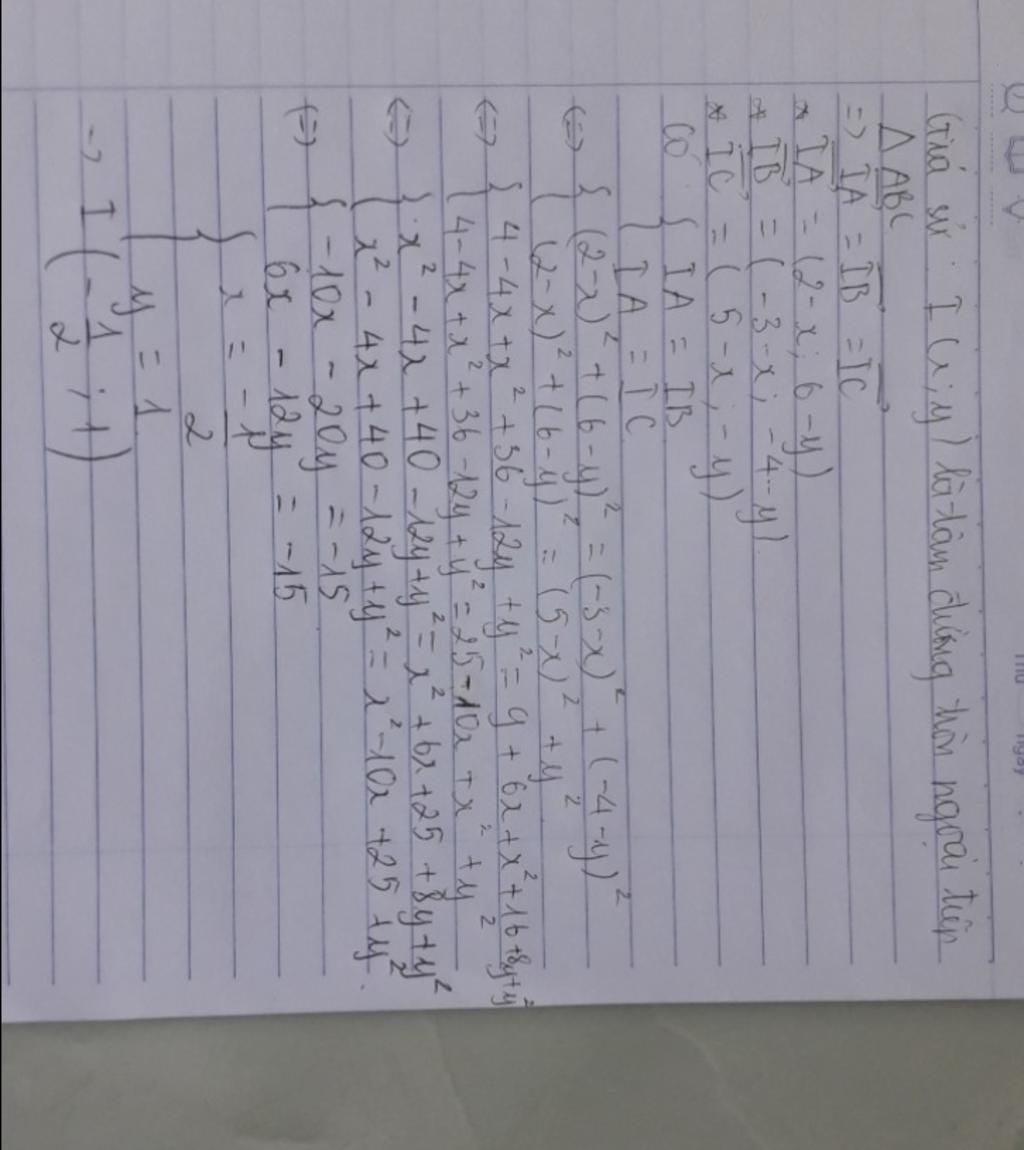 Thứ ngày
Giả sử I (x; y) là tâm đường tròn ngoại tiếp
Δ ABC
=> IA = IB = IC
* IA = (2 - x; 6 - y)
* IB = (-3 - x; -4 - y)
* IC = (5 - x; - y)
Có { IA = IB
{ IA = IC
<=> { (2-x)² + (6-y)² = (-3-x)² + (-4-y)²
{ (2-x)² + (6-y)² = (5-x)² + y²
<=> { 4 - 4x + x² + 36 - 12y + y² = 9 + 6x + x² + 16 + 8y + y²
{ 4 - 4x + x² + 36 - 12y + y² = 25 - 10x + x² + y²
<=> { x² - 4x + 40 - 12y + y² = x² + 6x + 25 + 8y + y²
{ x² - 4x + 40 - 12y + y² = x² - 10x + 25 + y²
<=> { -10x - 20y = -15
{ 6x - 12y = -15
{ x = -1/2
{ y = 1
-> I (-1/2; 1)